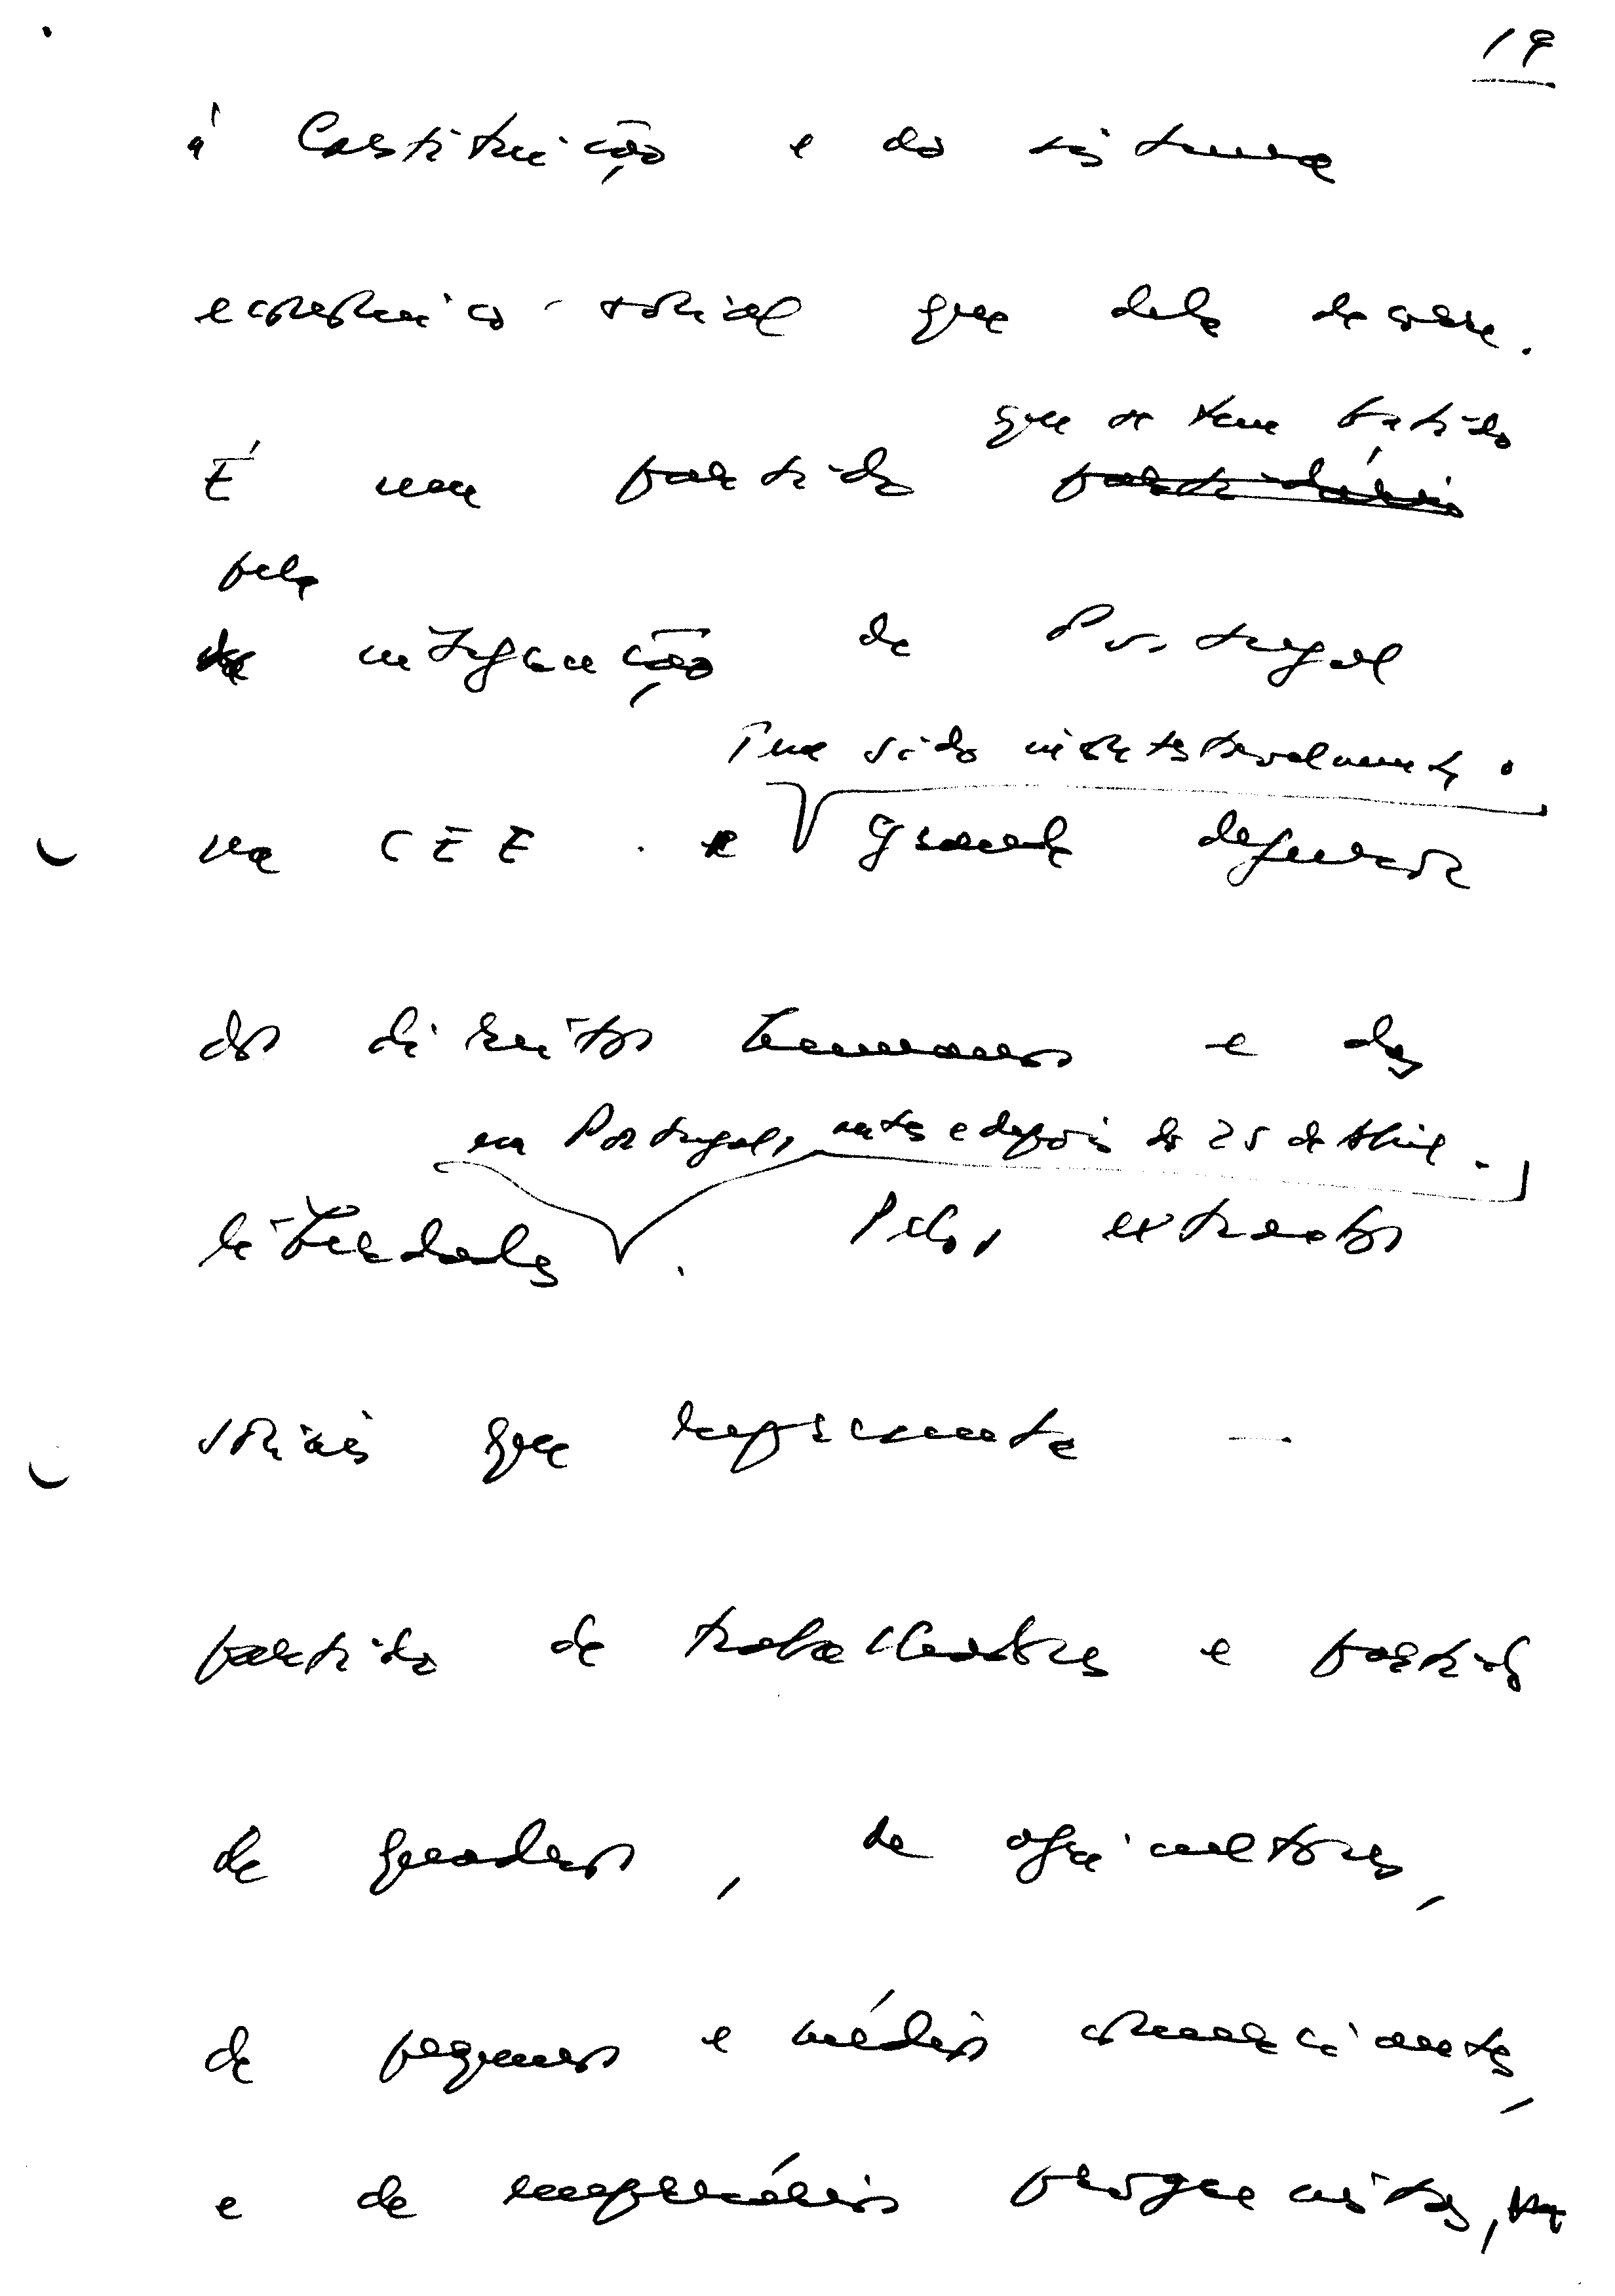 19
à Constituição e do sistema
económico-social que dela decorre.
que se tem batido
É um partido partidário
pela
da integração de Portugal
Tem sido incontestavelmente o
na CEE. e grande defensor
dos direitos humanos e das
em Portugal, antes e depois do 25 de Abril.
liberdades. Pelos extractos
sociais que representa —
partido de trabalhadores e partido
de quadros, de agricultores,
de pequenos e médios comerciantes,
e de empresários progressistas,